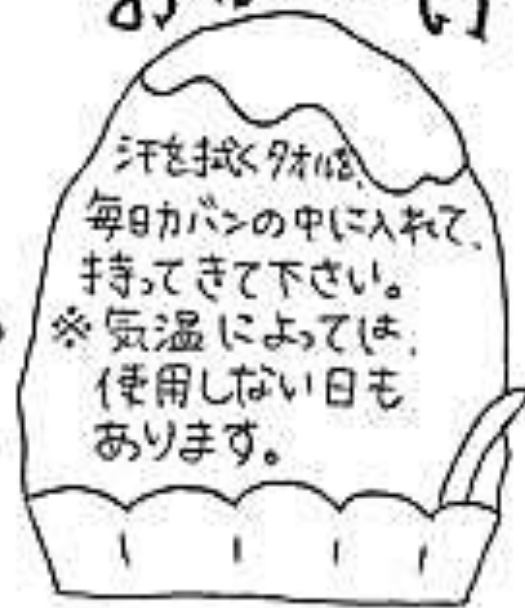 汗を拭くタオルを、
毎日カバンの中に入れて、
持ってきて下さい。
※気温によっては、
使用しない日も
あります。